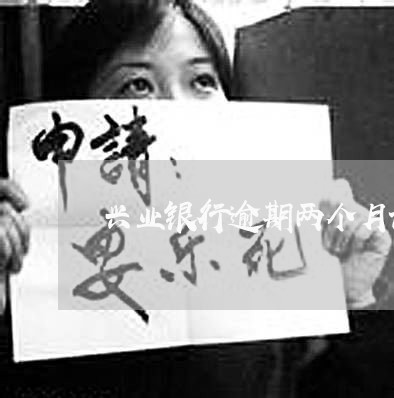 申請：
兴业银行逾期两个月
安乐死